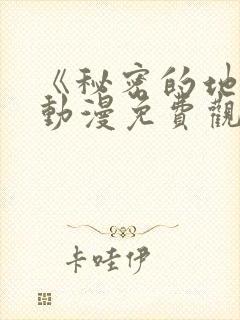 《秘密的地
動漫免費觀
卡哇伊